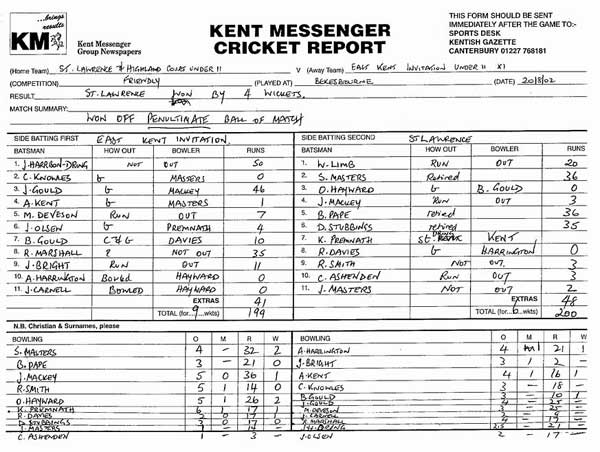 ...brings results
KM
Kent Messenger
Group Newspapers
KENT MESSENGER
CRICKET REPORT
THIS FORM SHOULD BE SENT
IMMEDIATELY AFTER THE GAME TO:-
SPORTS DESK
KENTISH GAZETTE
CANTERBURY 01227 768181
(Home Team) ST. LAWRENCE & HIGHLAND COURT UNDER 11 V (Away Team) EAST KENT INVITATION UNDER 11 XI
(COMPETITION) FRIENDLY (PLAYED AT) BEKESBOURNE (DATE) 20/8/02
RESULT ST. LAWRENCE WON BY 4 WICKETS.
MATCH SUMMARY:
WON OFF PENULTIMATE BALL OF MATCH
SIDE BATTING FIRST EAST KENT INVITATION.
BATSMAN HOW OUT BOWLER RUNS
1. J. HARRISON-DRING NOT OUT 50
2. C. KNOWLES b MASTERS 0
3. J. GOULD b MACKEY 46
4. A. KENT b MASTERS 1
5. M. DEVESON RUN OUT 7
6. J. OLSEN b PREMNATH 4
7. B. GOULD C & b DAVIES 10
8. R. MARSHALL ? NOT OUT 35
9. J. BRIGHT RUN OUT 11
10. A. HARRINGTON Bowled HAYWARD 0
11. J. CARNELL BOWLED HAYWARD 0
EXTRAS 41
TOTAL (for 9 wkts) 199
SIDE BATTING SECOND ST LAWRENCE
BATSMAN HOW OUT BOWLER RUNS
1. W. LIMB RUN OUT 20
2. S. MASTERS Retired 36
3. O. HAYWARD b B. GOULD 0
4. J. MACKEY RUN OUT 3
5. B. PAPE retired 36
6. D. STUBBINGS retired 35
7. K. PREMNATH St. KENT
8. R. DAVIES b HARRINGTON 0
9. R. SMITH NOT OUT. 3
10. C. ASHENDEN RUN OUT 3
11. J. MASTERS NOT OUT 2
EXTRAS 48
TOTAL (for 6 wkts) 200
N.B. Christian & Surnames, please
BOWLING O M R W
S. MASTERS 4 - 32 2
B. PAPE 3 - 21 0
J. MACKEY 5 0 36 1
R. SMITH 5 1 14 0
O. HAYWARD 5 1 26 2
K. PREMNATH 6 1 17 1
R. DAVIES 2 0 17 1
D. STUBBINGS 3 0 17
J. MASTERS 1 - 14 -
C. ASHENDEN 1 - 3 -
BOWLING O M R W
A. HARRINGTON 4 1 21 1
J. BRIGHT 3 1 2 -
A. KENT 4 1 16 1
C. KNOWLES 3 - 18 -
B. GOULD 3 - 10 1
J. GOULD 4 - 25 -
M. DEVESON 3 - 25 -
J. CARNELL
R. MARSHALL
J.OLSEN 2 - 17 -